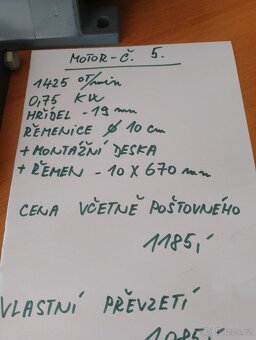 MOTOR-Č. 5.
1425 OT/min
0,75 KW
HŘÍDEL - 19 mm
ŘEMENICE Ø 10 cm
+ MONTÁŽNÍ DESKA
+ ŘEMEN - 10 X 670 mm
CENA VČETNĚ POŠTOVNÉHO
1185,-
VLASTNÍ PŘEVZETÍ
1085,-